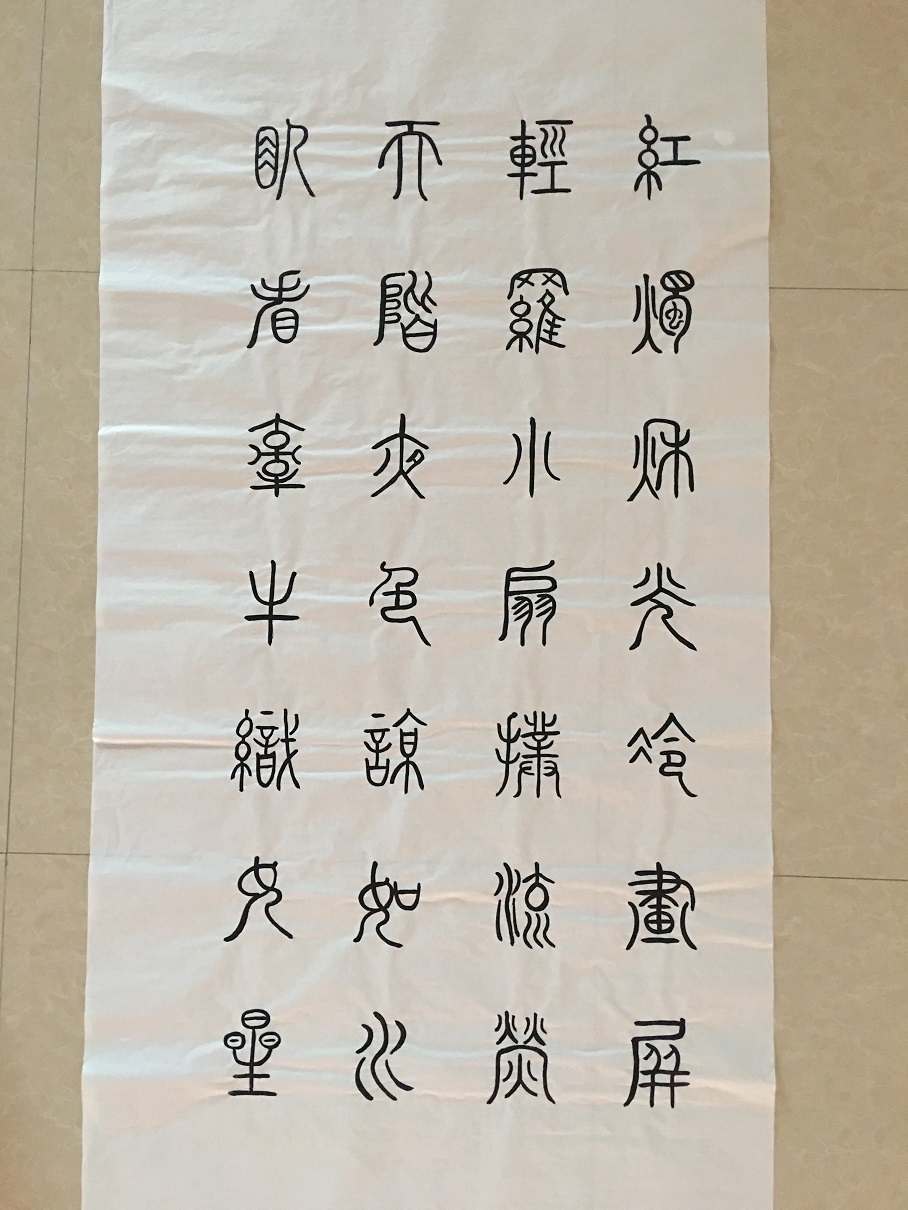 紅燭秋光冷畫屏
輕羅小扇撲流熒
天階夜色諒如水
臥看牽牛織女星